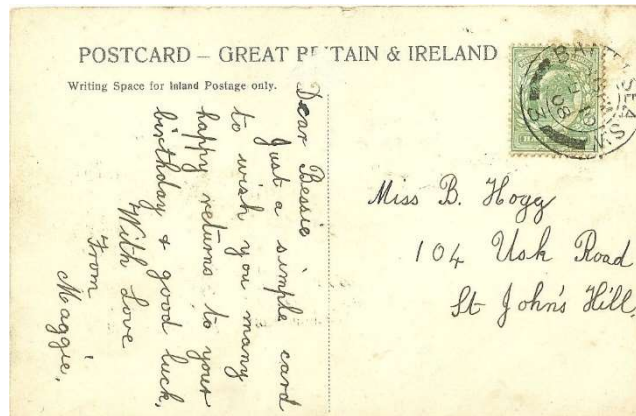 POSTCARD – GREAT BRITAIN & IRELAND
Writing Space for Inland Postage only.
Dear Bessie
Just a simple card
to wish you many
happy returns to your
birthday & good luck.
With Love
From
Maggie.
BATTERSEA
S.W.
08
3
Miss B. Hogg
104 Usk Road
St John's Hill,